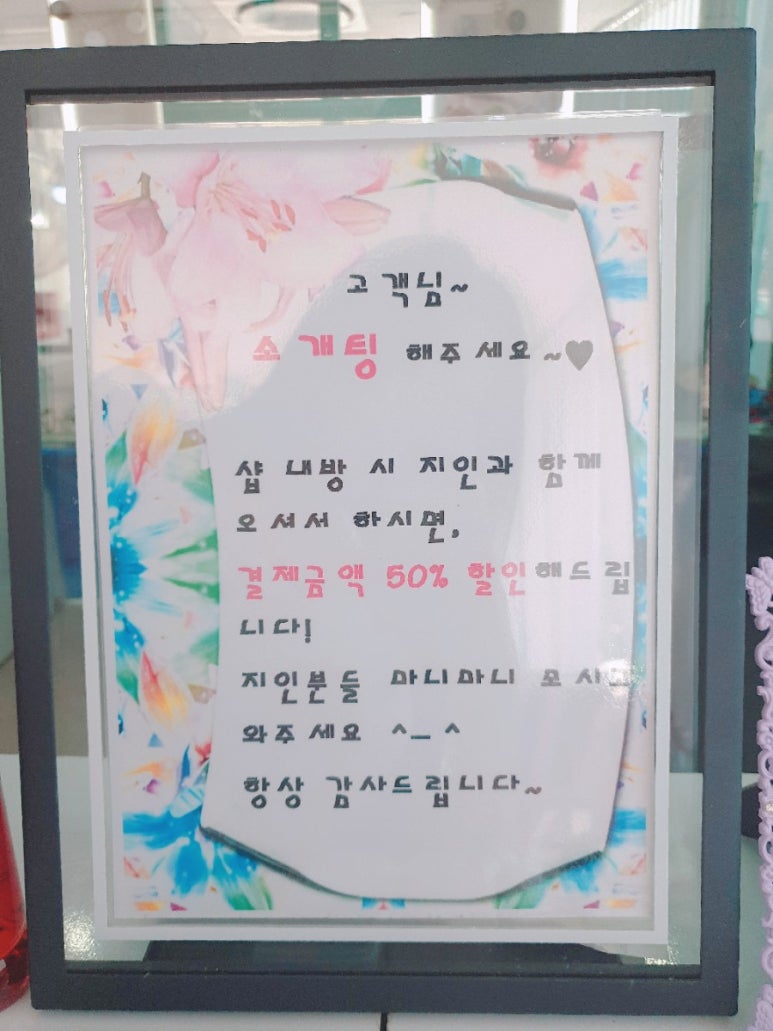 고객님~
소개팅 해주세요~♥
샵 내방 시 지인과 함께
오셔서 하시면,
결제금액 50% 할인해드립
니다!
지인분들 마니마니 모시고
와주세요 ^_^
항상 감사드립니다~